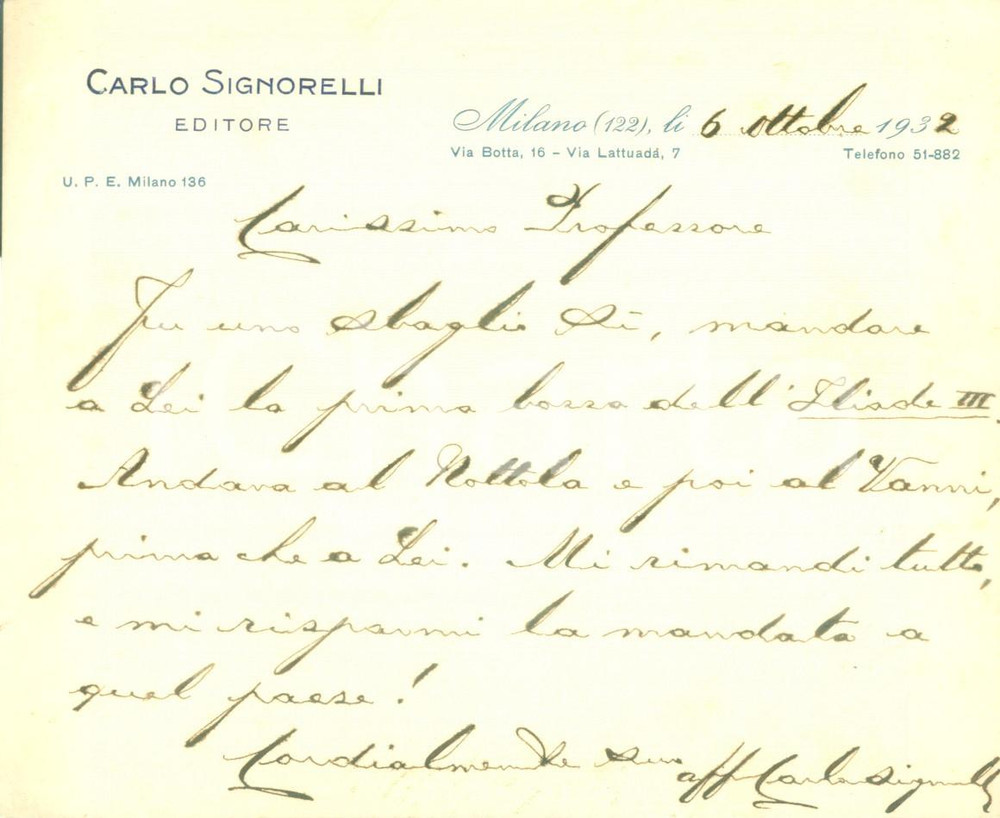 CARLO SIGNORELLI
EDITORE
Milano (122), li 6 Ottobre 1932
Via Botta, 16 - Via Lattuadá, 7 Telefono 51-882
U. P. E. Milano 136
Carissimo Professore
Fu uno sbaglio sì, mandare
a Lei la prima bozza dell'Iliade III.
Andava al Nottola e poi al Vanni,
prima che a Lei. Mi rimandi tutto,
e mi risparmi la mandata a
quel paese!
Cordialmente suo
aff Carlo Signorelli